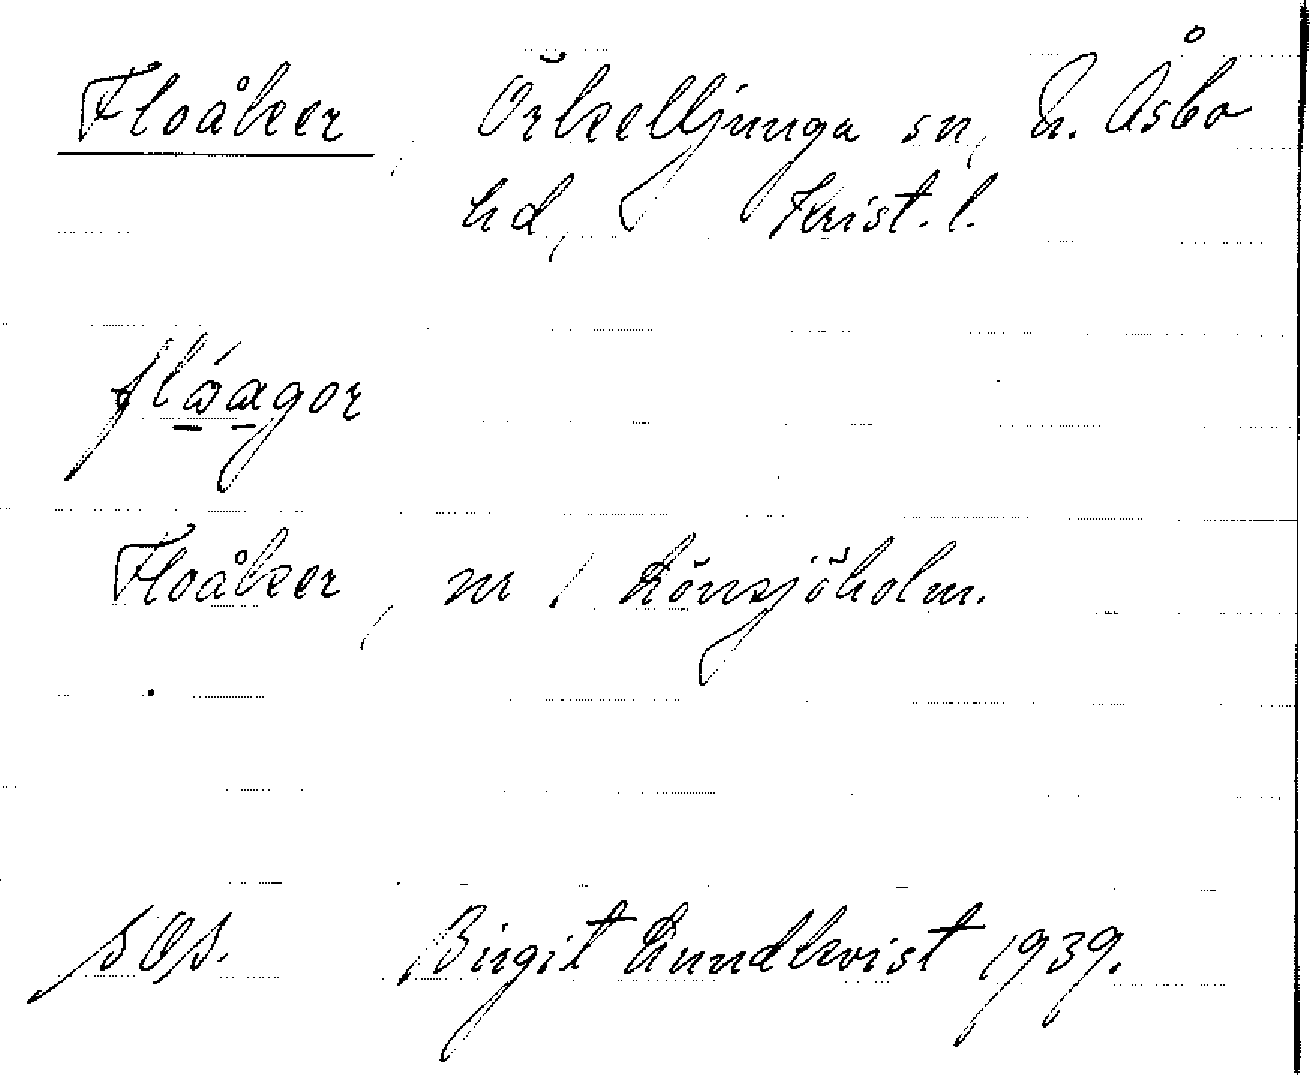 Floåker, Örkelljunga sn, N. Åsbo
hd, Krist. l.
Floåker, nr 1 Lönsjöholm.
Birgit Lundkvist 1939.